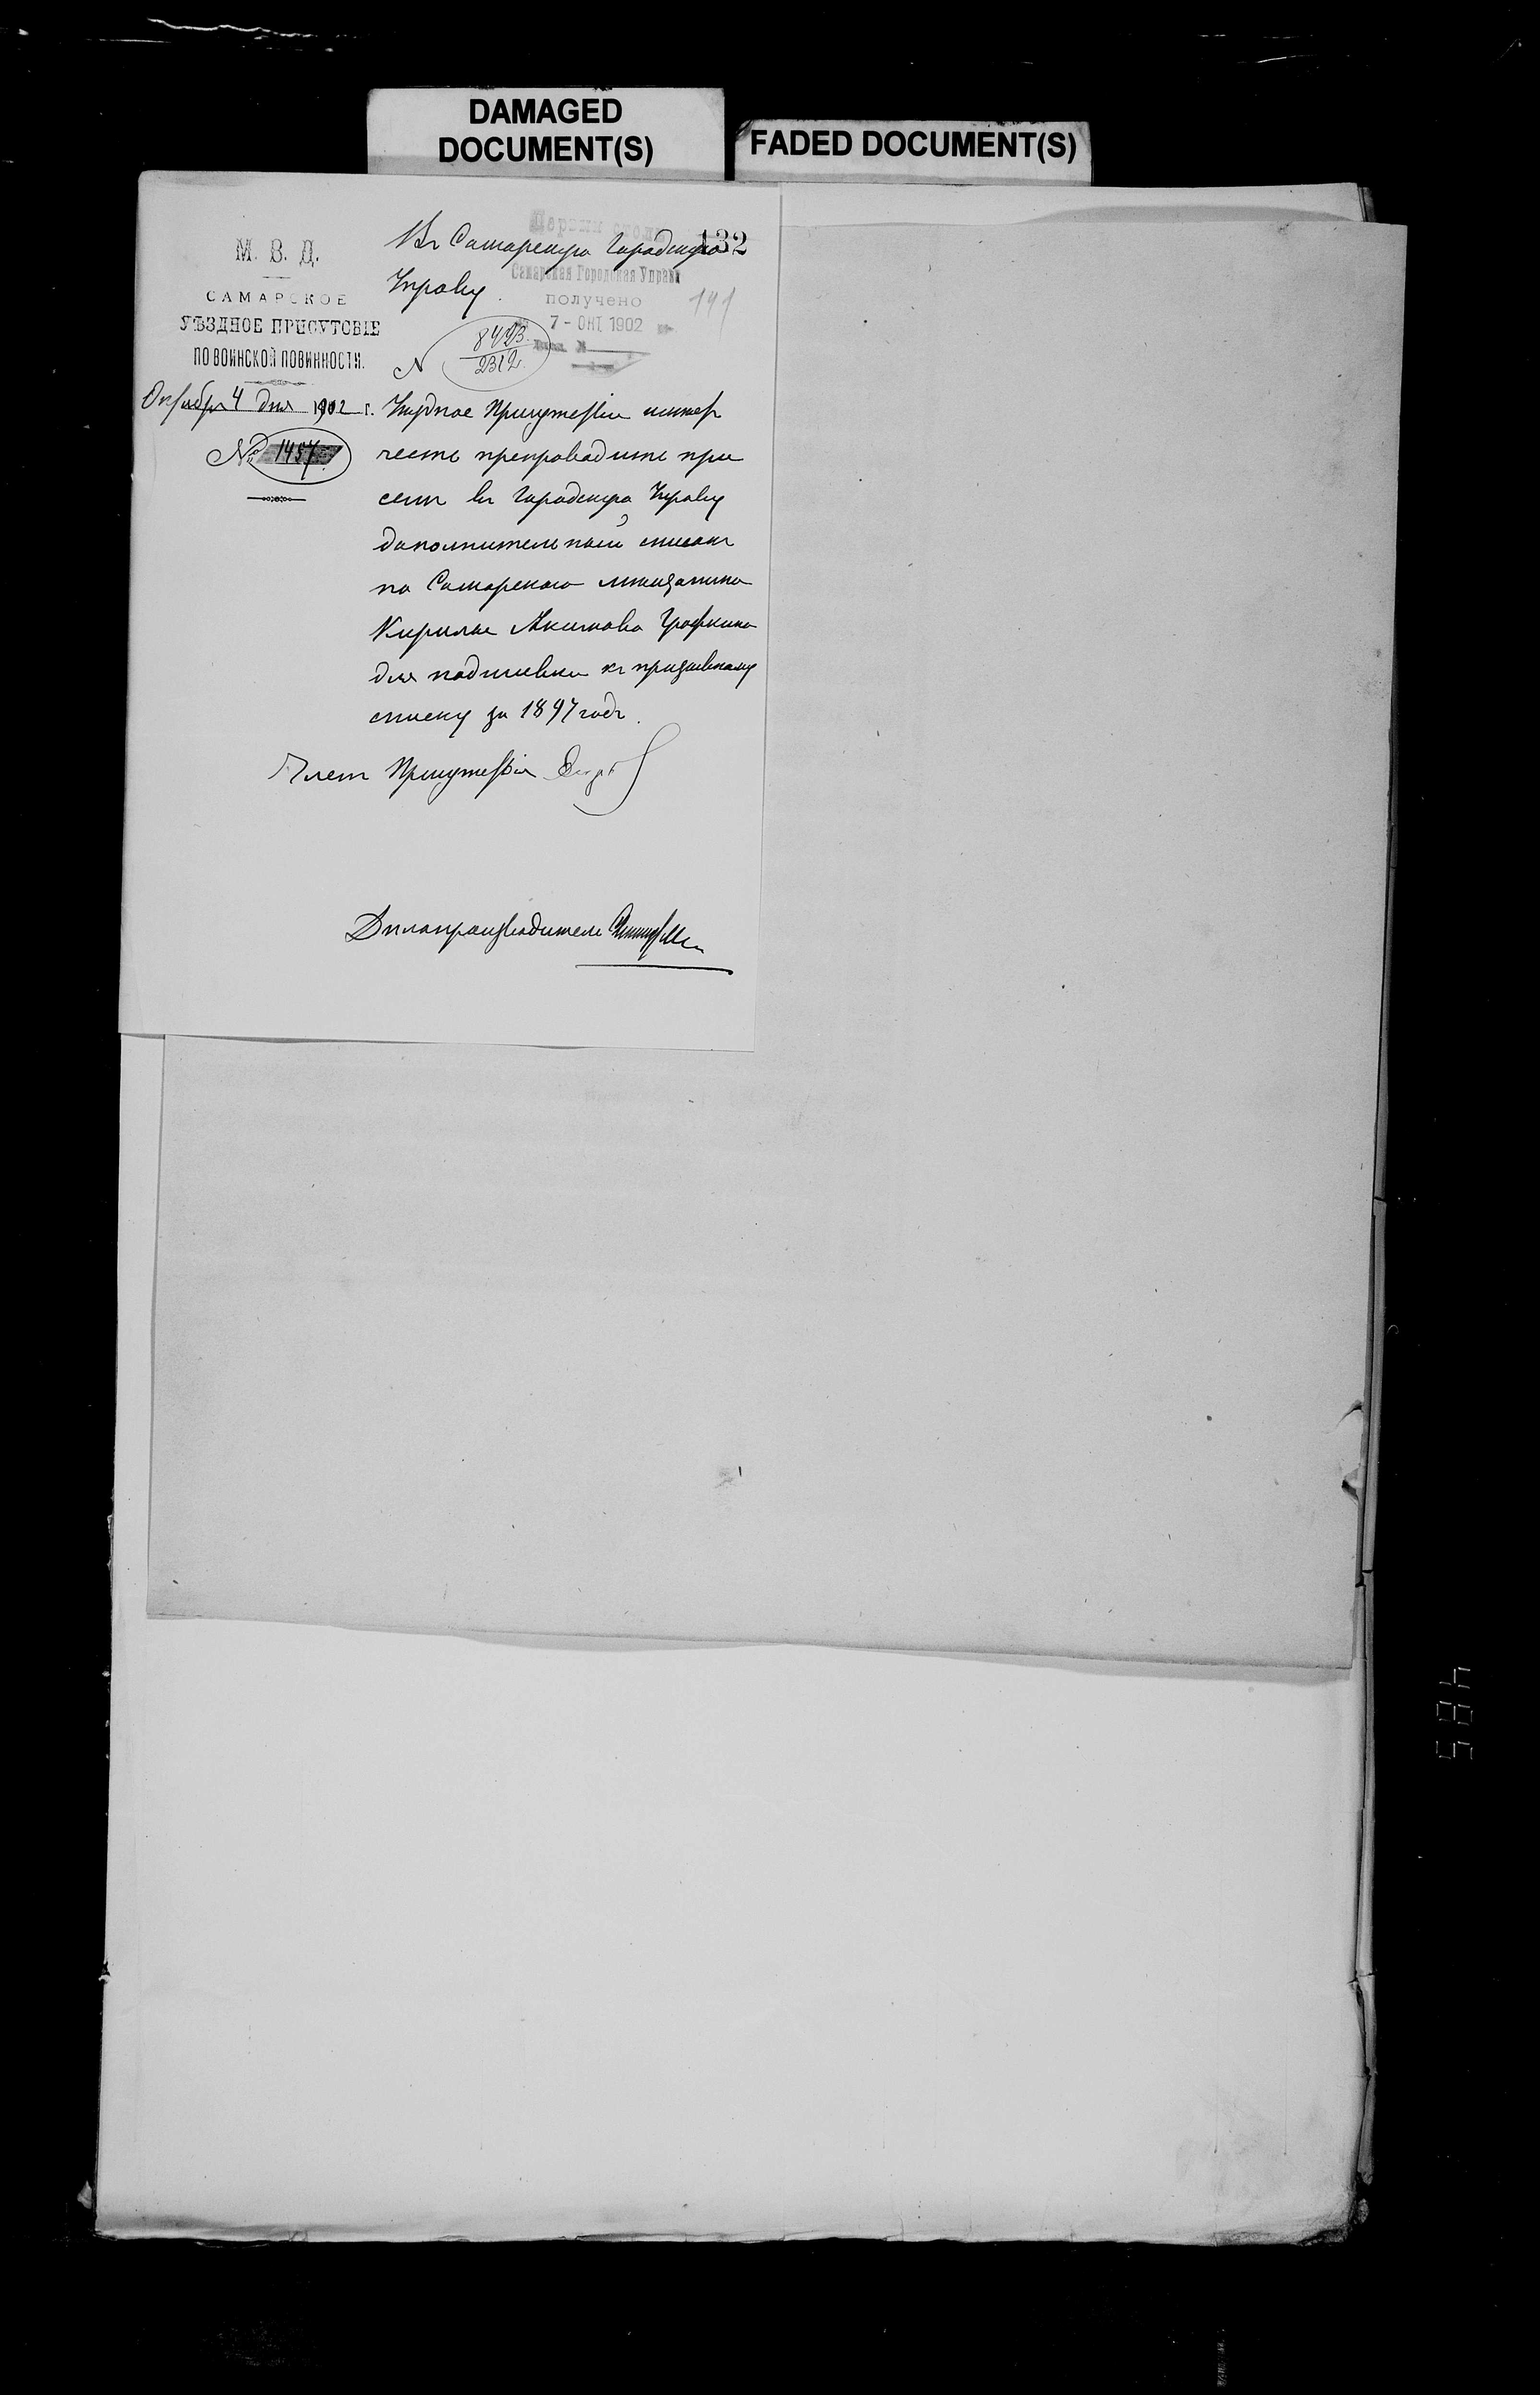 DAMAGED
DOCUMENT(S)
FADED DOCUMENT(S)
М. В. Д.
САМАРСКОЕ
УѢЗДНОЕ ПРИСУТСВІЕ
ПО ВОИНСКОЙ ПОВИННОСТИ.
Октября 4 дня 1902 г.
№ 1457
132
191
Въ Самарскую Городскую
Управу.
Самарская Городская Управа
получено
7 - ОКТ 1902
N 8493
2312
Уѣздное Присутствіе имѣетъ
честь препроводить при
семъ въ Городскую Управу
дополнительный списокъ
на Самарскаго мѣщанина
Кирилла Акимова Графкина
для подшивки къ призывному
списку за 1897 годъ.
Членъ Присутствія
Дѣлопроизводитель
485